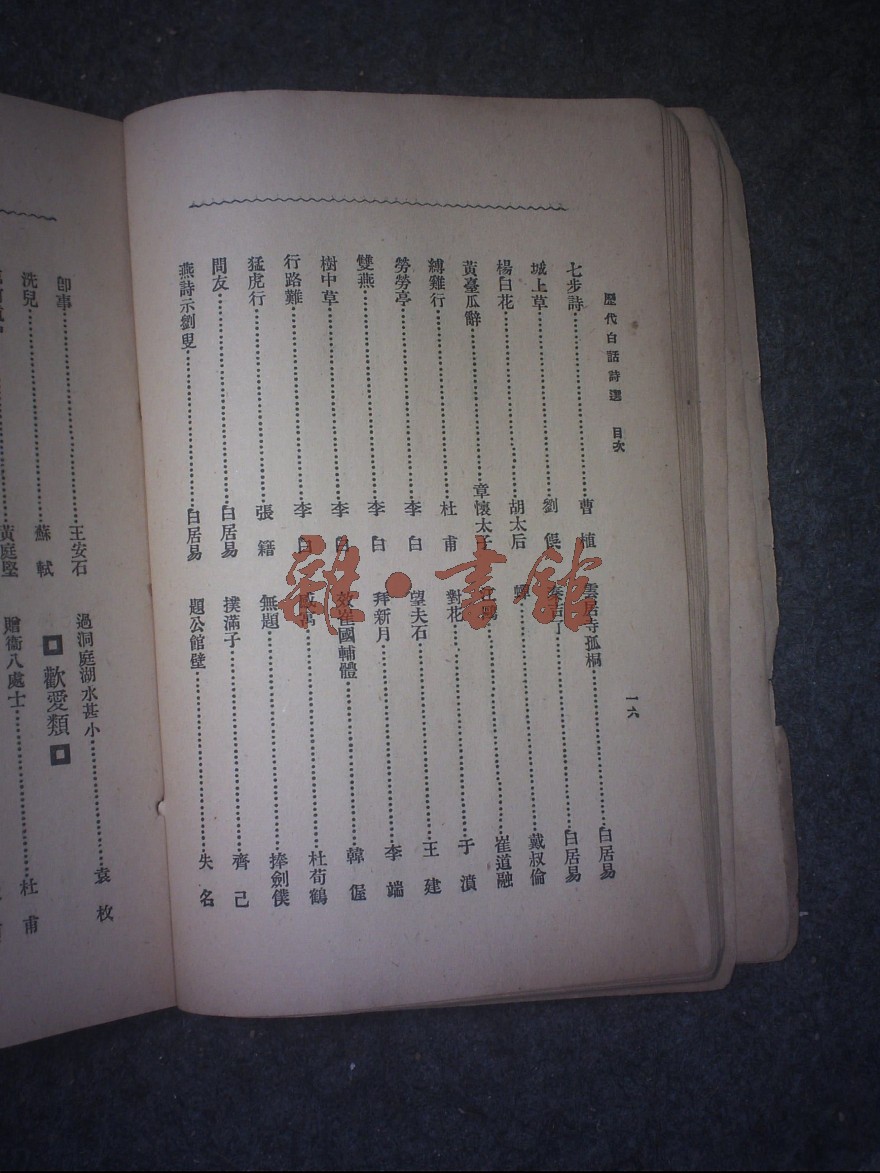 歷代白話詩選　目次　一六
七步詩……曹植
城上草……劉俁
楊白花……胡太后
黃臺瓜辭……章懷太子
縛雞行……杜甫
勞勞亭……李白
雙燕……李白
樹中草……李白
行路難……李白
猛虎行……張籍
問友……白居易
燕詩示劉叟……白居易
雲居寺孤桐……白居易
秦吉了……白居易
……戴叔倫
江鷗……崔道融
對花……于濆
望夫石……王建
拜新月……李端
效崔國輔體……韓偓
感寓……杜荀鶴
無題……捧劍僕
撲滿子……齊己
題公館壁……失名
即事……王安石
洗兒……蘇軾
黃庭堅
過洞庭湖水甚小……袁枚
歡愛類
贈衛八處士……杜甫
雜·書館